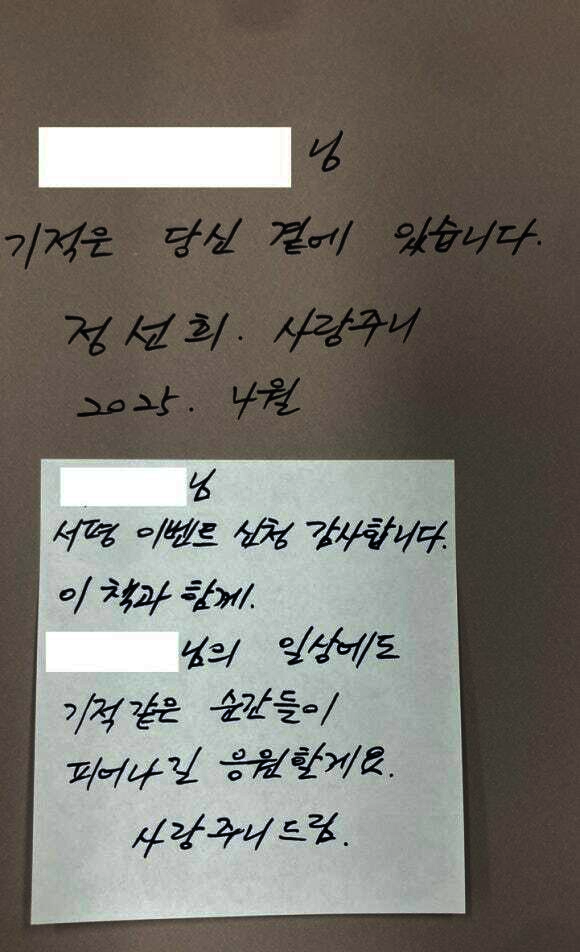 님
기적은 당신 곁에 있습니다.
정선희. 사랑주니
2025. 4월
님
서평 이벤트 신청 감사합니다.
이 책과 함께.
님의 일상에도
기적같은 순간들이
피어나길 응원할게요.
사랑주니드림.